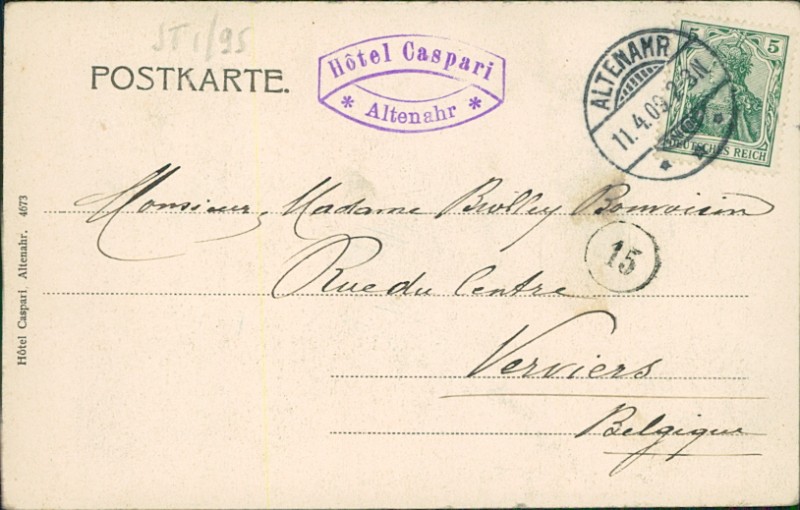 ST1/95
POSTKARTE.
Hôtel Caspari
* Altenahr *
ALTENAHR
11.4.09.
5 5
DEUTSCHES REICH
Monsieur, Madame Biolley Bonvoisin
15
Rue du Centre
Verviers
Belgique
Hôtel Caspari, Altenahr. 4673